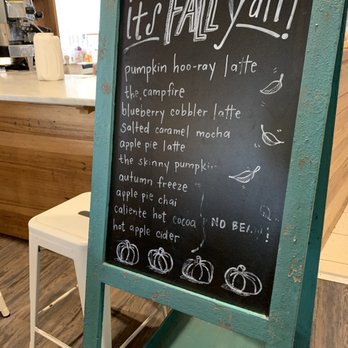 it's FALL y'all!
pumpkin hoo-ray latte
the campfire
blueberry cobbler latte
salted caramel mocha
apple pie latte
the skinny pumpkin
autumn freeze
apple pie chai
caliente hot cocoa
hot apple cider
NO BEAN!